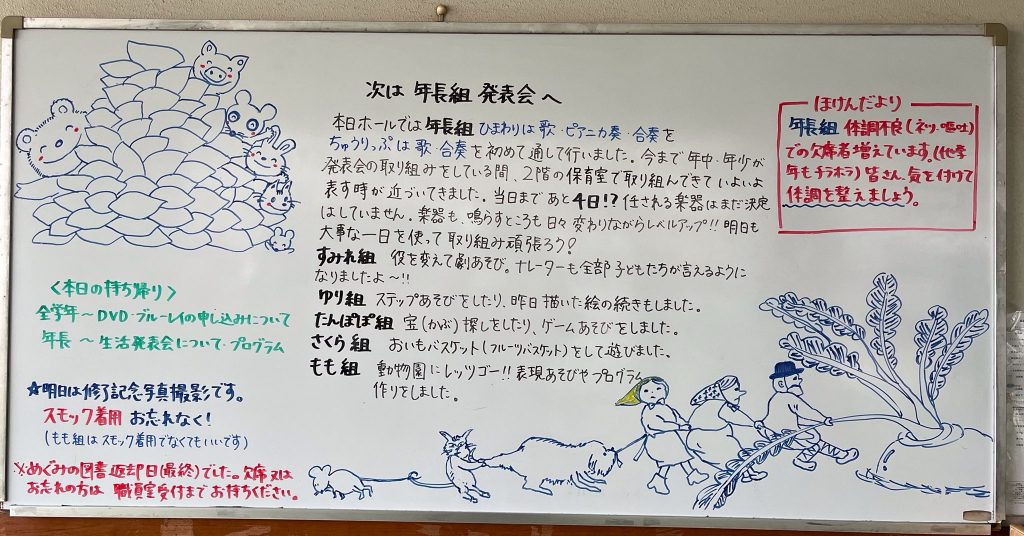 次は 年長組 発表会 へ
本日ホールでは 年長組 ひまわりは 歌・ピアニカ奏・合奏を
ちゅうりっぷ は 歌・合奏 を 初めて 通して行いました。今まで 年中・年少が
発表会の取り組みをしている間、2階の保育室で取り組んできて いよいよ
表す時が近づいてきました。当日まで あと 4日!? 任される楽器はまだ決定
はしていません。楽器も、鳴らすところも 日々 変わりながらレベルアップ!! 明日も
大事な一日を使って 取り組み頑張ろう!
すみれ組 役を変えて劇あそび。ナレーターも全部子どもたちが言えるように
なりましたよ〜!!
ゆり組 ステップあそびをしたり、昨日描いた絵の続きもしました。
たんぽぽ組 宝(かぶ)探しをしたり、ゲームあそびをしました。
さくら組 おいもバスケット(フルーツバスケット)をして遊びました。
もも組 動物園にレッツゴー!! 表現あそびやプログラム
作りをしました。
ほけんだより
年長組 体調不良(ネツ・嘔吐)
での欠席者増えています。(他学
年もチラホラ) 皆さん 気を付けて
体調を整えましょう。
<本日の持ち帰り>
全学年〜DVD・ブルーレイの申し込みについて
年長 〜 生活発表会について・プログラム
☆明日は修了記念写真撮影です。
スモック着用 お忘れなく!
(もも組は スモック着用でなくてもいいです)
※めぐみの図書 返却日(最終)でした。欠席又は
お忘れの方は 職員室受付まで お持ちください。